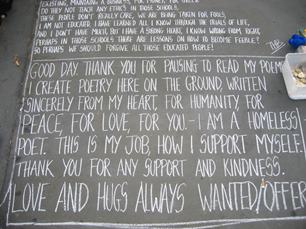 EXISTING, MAINTAINING A BUSINESS, FOR MONEY, FOR GREED.
DO THEY NOT TEACH ANY ETHICS IN THOSE SCHOOLS.
THESE PEOPLE DON'T REALLY CARE, WE ARE BEING TAKEN FOR FOOLS.
I AM NOT EDUCATED I HAVE LEARN'D ALL I KNOW THROUGH THE TRIALS OF LIFE,
AND I DON'T HAVE MUCH, BUT I HAVE A STRONG HEART, I KNOW WRONG FROM RIGHT,
PERHAPS IN THOSE SCHOOLS THERE ARE LESSONS ON HOW TO BECOME FEEBLE?
SO PERHAPS WE SHOULD FORGIVE ALL THOSE EDUCATED PEOPLE!
GOOD DAY. THANK YOU FOR PAUSING TO READ MY POEM
I CREATE POETRY HERE ON THE GROUND, WRITTEN
SINCERELY FROM MY HEART, FOR HUMANITY FOR
PEACE FOR LOVE FOR YOU - I AM A HOMELESS
POET THIS IS MY JOB, HOW I SUPPORT MYSELF.
THANK YOU FOR ANY SUPPORT AND KINDNESS.
LOVE AND HUGS ALWAYS WANTED/OFFER